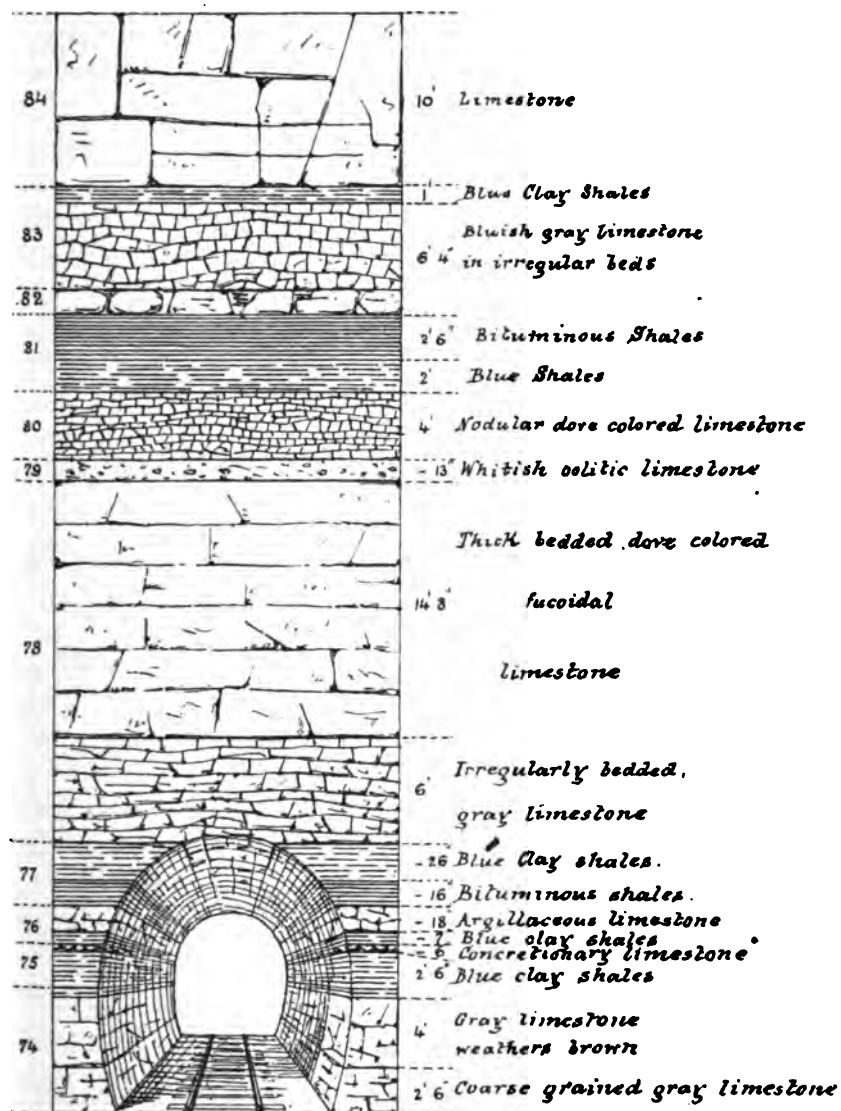 84 10' Limestone
1' Blue Clay Shales
83 Bluish gray limestone
6' 4" in irregular beds
82
2' 6" Bituminous Shales
81
2' Blue Shales
80 4' Nodular dove colored limestone
79 - 13" Whitish oolitic limestone
Thick bedded dove colored
14' 8" fucoidal
78
limestone
Irregularly bedded,
6'
gray limestone
- 26" Blue Clay shales.
77
- 16" Bituminous shales.
76 - 18 Argillaceous limestone
- 7" Blue clay shales
- 6" Concretionary limestone
75 2' 6" Blue clay shales
Gray limestone
4'
74 weathers brown
2' 6" Coarse grained gray limestone